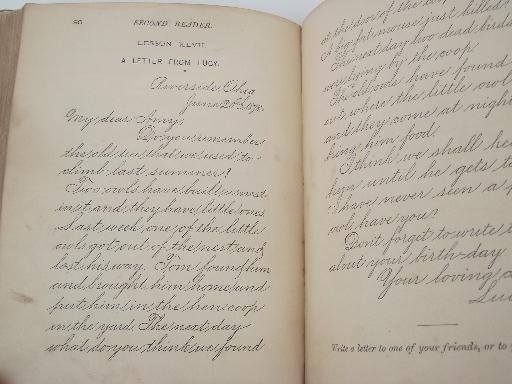 80 SECOND READER.
LESSON XLVII.
A LETTER FROM LUCY.
Riverside, Ohio
June 20th, 1878.
My dear Amy,
Do you remember
the old tree that we used to
climb last summer?
Two owls have built a nest
in it, and they have little ones.
Last week one of the little
owls got out of the nest and
lost his way. Tom found him
and brought him home, and
put him in the hen coop
in the yard. The next day
what do you think we found
at the door of the
A big fat mouse just killed!
The next day two dead birds
were lying by the coop.
The old owls have found
out where the little owl
and they come at night
bring him food.
I think we shall
him until he gets
I have never seen a
owl, have you?
Don't forget to write
about your birth-day
Your loving
Write a letter to one of your friends, or to